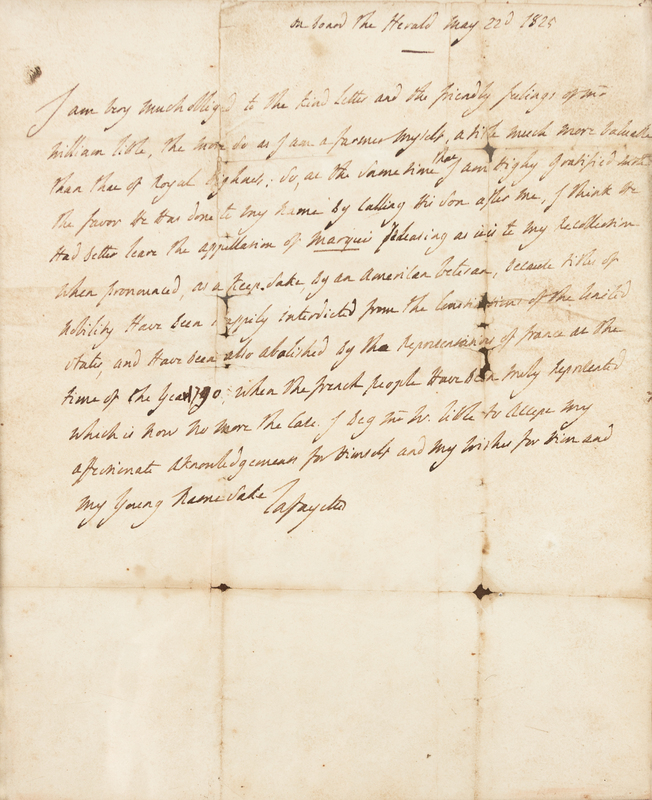 on board the Herald May 22d 1825
I am very much obliged to the kind letter and the friendly feelings of mr
William little, the more so as I am a farmer myself, a title much more valuable
than that of Royal Highness; so, at the same time that I am highly gratified with
the favor he has done to my name by calling his son after me, I think he
Had better leave the appellation of Marquis pleasing as it is to my recollection
when pronounced, as a keep-sake, by an American veteran, because titles of
nobility Have been happily interdicted from the Constitutions of the United
states, and Have been also abolished by the Representatives of france at the
time of the Year 1790 when the french people Have been truly represented
which is now no more the Case. I beg mr W. little to accept my
affectionate aknowledgements for Himself and my wishes for Him and
my Young Name Sake Lafayette